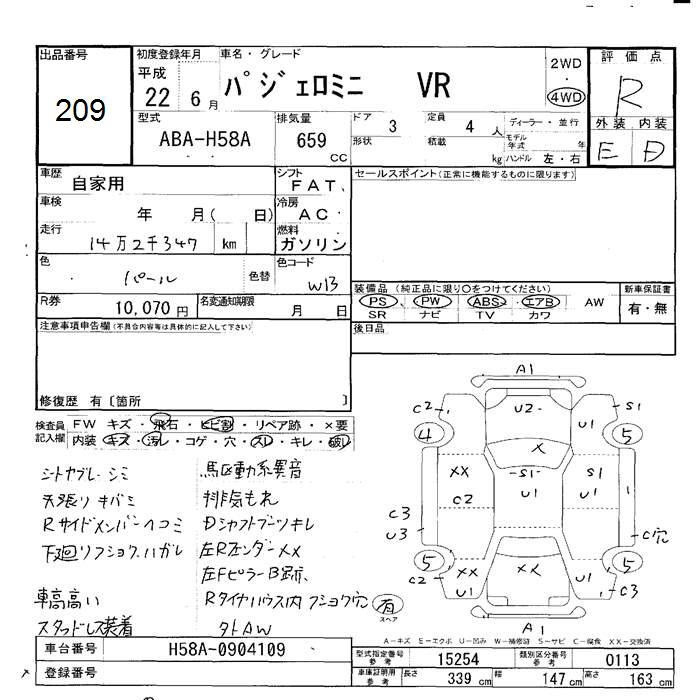 出品番号
209
初度登録年月
平成
22 6 月
車名・グレード
パジェロミニ VR
2WD
・
4WD
評価点
R
型式
ABA-H58A
排気量
659
CC
ドア 3
形状
定員 4 人
積載 kg
ディーラー・並行
モデル年式 年
ハンドル 左・右
外装 内装
E D
車歴 自家用
シフト FAT
セールスポイント(正常に機能するものに限ります)
車検 年 月( 日)
冷房 AC
走行 14万2千347 km
燃料 ガソリン
色 パール 色替
色コード W13
R券 10,070円
名変通知期限 月 日
装備品 (純正品に限り〇をつけてください)
PS PW ABS エアB AW
SR ナビ TV カワ
新車保証書
有・無
注意事項申告欄(不具合内容等は具体的に記入して下さい)
後日品
修復歴 有〔箇所 〕
検査員記入欄
FW キズ・飛石・ヒビ割・リペア跡・×要
内装・キズ・汚レ・コゲ・穴・スレ・キレ・破レ
シートヤブレ・シミ
天張リキバミ
Rサイドメンバーヘコミ
下廻リフショク、ハガレ
車高高い
スタッドレス装着
馬区動系異音
排気もれ
Dシャフトブーツキレ
左Rフェンダー××
左FピラーB跡
Rタイヤハウス内フショク穴
外AW
A1
C2
U2
S1
U1
4
5
X
XX
S1
S1
C2
U1
U1
1
C3
U3
C穴
5
5
C2
XX
U1
XX
U1
C3
有
スペア
A1
A-キズ E-エクボ U-凹み W-補修跡 S-サビ C-腐食 XX-交換済
車台番号 H58A-0904109
登録番号
型式指定番号 参考 15254
類別区分番号 参考 0113
車庫証明用 参考
長さ 339 cm
幅 147 cm
高さ 163 cm